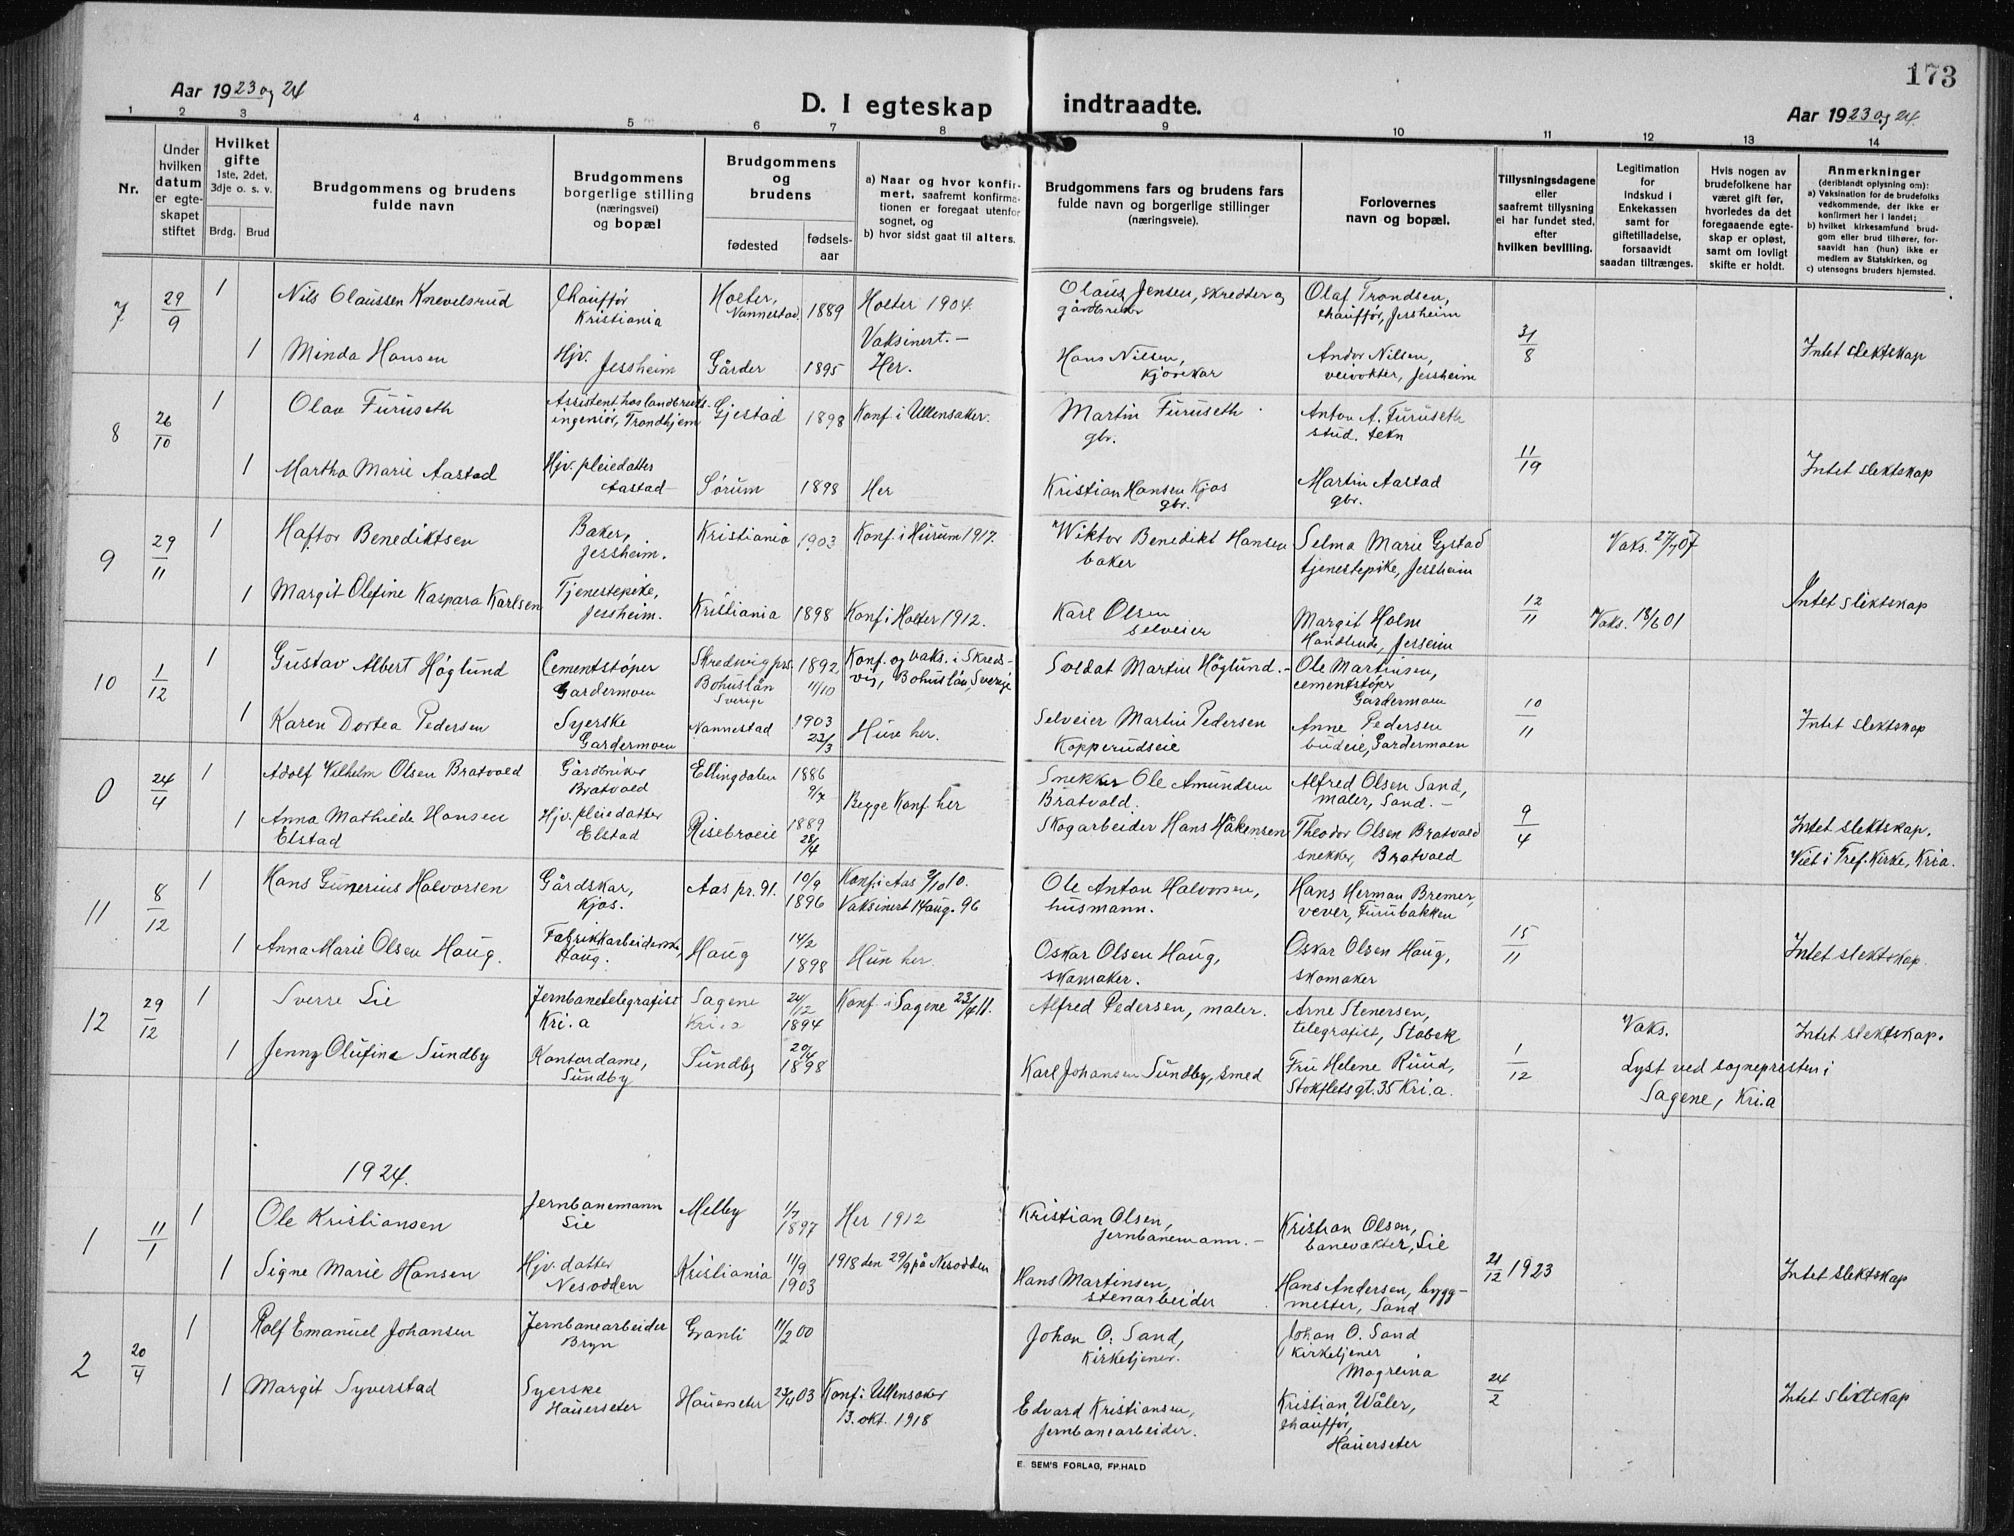 173
Aar 1923 og 24
D. I egteskap indtraadte.
Aar 1923 og 24.
1 2 3 4 5 6 7 8 9 10 11 12 13 14
Nr.
Under hvilken datum er egteskapet stiftet
Hvilket gifte
1ste, 2det, 3dje o. s. v.
Brdg. Brud
Brudgommens og brudens fulde navn
Brudgommens og brudens borgerlige stilling (næringsvei) og bopæl
Brudgommens og brudens
fødested
fødselsaar
a) Naar og hvor konfirmert, saafremt konfirmationen er foregaat utenfor sognet, og
b) hvor sidst gaat til alters.
Brudgommens fars og brudens fars fulde navn og borgerlige stillinger (næringsveie).
Forlovernes navn og bopæl.
Tillysningsdagene eller saafremt tillysning ei har fundet sted, efter hvilken bevilling.
Legitimation for indskud i Enkekassen samt for giftetilladelse, forsaavidt saadan tiltrænges.
Hvis nogen av brudefolkene har været gift før, hvorledes da det foregaaende egteskap er opløst, samt om lovligt skifte er holdt.
Anmerkninger
(deriblandt oplysning om):
a) Vaksination for de brudefolks vedkommende, der ikke er konfirmert her i landet;
b) hvilket kirkesamfund brudgom eller brud tilhører, forsaavidt han (hun) ikke er medlem av Statskirken, og
c) utensogns bruders hjemsted.
7 29/9 1 Nils Olaussen Knevelsrud Chauffør Kristiania Holter, Nannestad 1889 Holter 1904. Vaksinert. – Olaus Jensen, skredder og gårdbruker Olaf Trondsen, chauffør, Jessheim
1 Minda Hansen Hjv. Jessheim Gårder 1895 Her. Hans Nilsen, kjørekar Andor Nilsen, veivokter, Jessheim 31/8 Intet slektskap
8 26/10 1 Olav Furuseth Assistent hos landbruksingeniør, Trondhjem Gjestad 1898 Konf. i Ullensaker. Martin Furuseth gbr. Anton A. Furuseth stud. tekn
1 Martha Marie Aastad Hjv. pleiedatter Aastad – Sørum 1898 Her Kristian Hansen Kjos gbr. Martin Aastad gbr. 11/19 Intet slektskap
9 29/11 1 Haftor Benediktsen Baker, Jessheim. Kristiania 1903 Konf. i Hurum 1917. Wiktor Benedikt Hansen baker Selma Marie Gystad tjenestepike, Jessheim Vaks. 27/7 07
1 Margit Olefine Kaspara Karlsen Tjenestepike, Jessheim. Kristiania 1898 Konf. i Holter 1912. Karl Olsen selveier Margit Holm Handlende, Jesseim 12/11 Vaks. 18/6 01 Intet slektskap
10 1/12 1 Gustav Albert Höglund Cementstøper Gardermoen Skredwig prs. Bohuslän Sverige 1892 11/10 Konf. og vaks. i Skredsvig, Bohuslän, Sverige Soldat Martin Höglund. – Ole Martinsen, cementstøper Gardermoen
1 Karen Dortea Pedersen Syerske Gardermoen Nannestad 1903 23/3 Hun her. Selveier Martin Pedersen Kopperudseie Anne Pedersen budeie, Gardermoen 10/11 Intet slektskap
0 24/4 1 Adolf Wilhelm Olsen Bratvold Gårdbruker Bratvold Ellingdalen 1886 9/7 Begge Konf. her Snekker Ole Amundsen Bratvold. Alfred Olsen Sand, maler, Sand. –
1 Anna Mathilde Hansen Elstad Hjv. pleiedatter Elstad Risebroeie 1889 28/4 Skogarbeider Hans Håkensen Theodor Olsen Bratvold snekker, Bratvold 9/4 Intet slektskap. Viet i Tref. Kirke, Kria.
11 8/12 1 Hans Gunerius Halvorsen Gårdskar, Kjos. Aas pr. gj. 10/9 1896 Konf. i Aas 2/10 10. Vaksinert 14 aug. 96 Ole Anton Halvorsen, husmann. Hans Herman Bremer, vever, Furubakken
1 Anna Marie Olsen Haug. Fabrikkarbeiderske, Haug. Haug 14/2 1898 Hun her. Oskar Olsen Haug, skomaker. Oskar Olsen Haug, skomaker 15/11 Intet slektskap.
12 29/12 1 Sverre Lie Jernbanetelegrafist Kri.a Sagene Kri.a 24/12 1894 Konf. i Sagene 23/4 11. Alfred Pedersen, maler. Arne Stenersen, telegrafist, Stabek Vaks. Intet slektskap.
1 Jenny Olufine Sundby Kontordame, Sundby Sundby 20/4 1898 Karl Johansen Sundby, smed Fru Helene Ruud, Stokfletsgt. 35 Kri.a. 1/12 Lyst ved sognepresten i Sagene, Kri.a
1924.
1 11/1 1 Ole Kristiansen Jernbanemann Lie Melby 1/7 1897 Her 1912 Kristian Olsen, jernbanemann. – Kristian Olsen, banevokter, Lie
1 Signe Marie Hansen Hjv. datter Nesodden Kristiania 11/9 1903 1918 den 29/9 på Nesodden Hans Martinsen, stenarbeider Hans Andersen, byggmester, Sand 21/12 1923 Intet slektskap
2 20/4 1 Rolf Emanuel Johansen Jernbanearbeider Bryn Granli 11/2 00 Johan O. Sand, Kirketjener. Johan O. Sand kirketjener Mogreina
1 Margit Syverstad Syerske Hauerseter Hauerseter 23/4 03 Konf. i Ullensaker 13. okt. 1918 Edvard Kristiansen, jernbanearbeider. Kristian Wåler, chauffør, Hauerseter 24/2 Intet slektskap
E. SEM'S FORLAG, FR.HALD